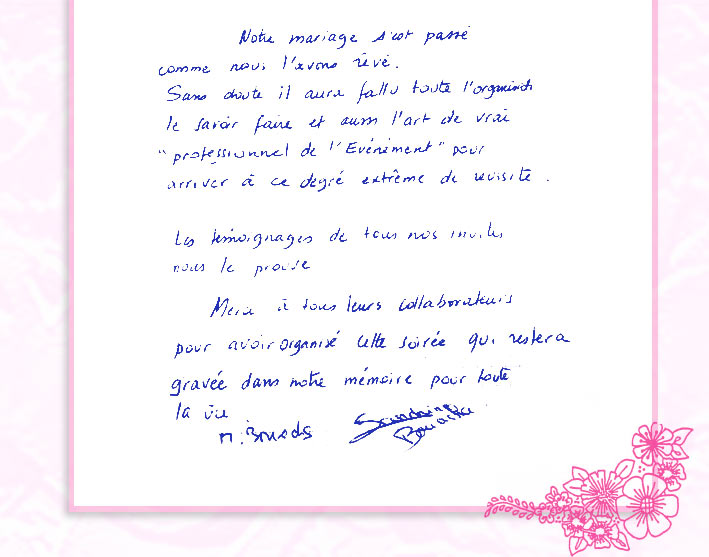 Notre mariage s'est passé
comme nous l'avons rêvé.
Sans doute il aura fallu toute l'organisat
le savoir faire et aussi l'art de vrai
"professionnel de l'Evénement" pour
arriver à ce degré extrême de réussite.
Les témoignages de tous nos invités
nous le prouve
Merci à tous leurs collaborateurs
pour avoir organisé cette soirée qui restera
gravée dans notre mémoire pour toute
la vie
Sandrine